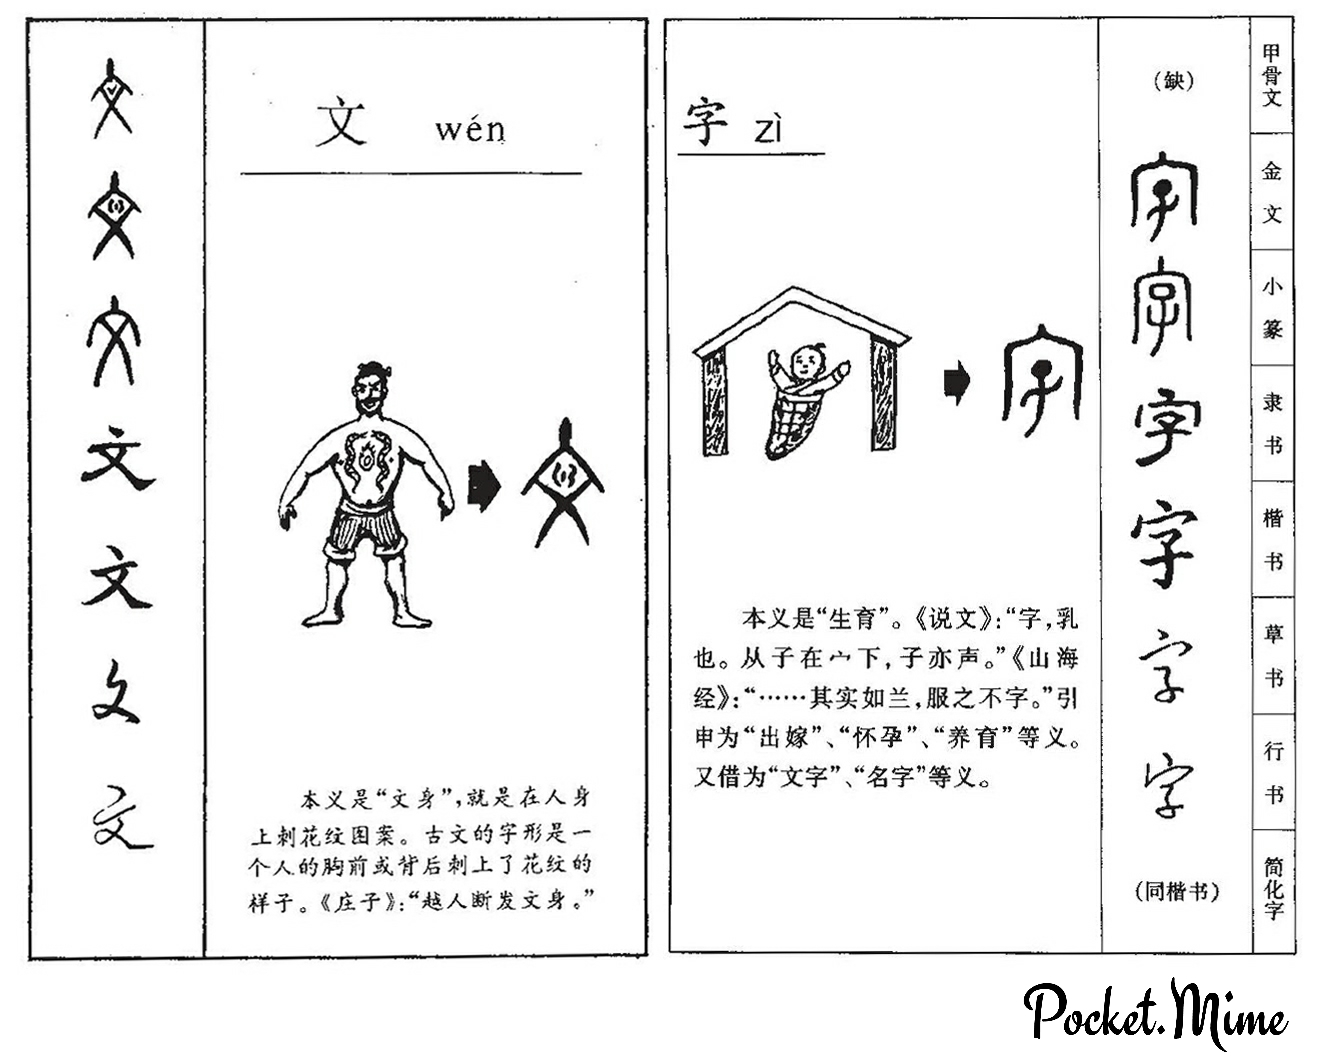 文
文
文
文
文
文
文
文 wén
本义是“文身”,就是在人身
上刺花纹图案。古文的字形是一
个人的胸前或背后刺上了花纹的
样子。《庄子》:“越人断发文身。”
字 zì
字
本义是“生育”。《说文》:“字,乳
也。从子在宀下,子亦声。”《山海
经》:“……其实如兰,服之不字。”引
申为“出嫁”、“怀孕”、“养育”等义。
又借为“文字”、“名字”等义。
(缺)
字
字
字
字
字
字
(同楷书)
甲骨文
金文
小篆
隶书
楷书
草书
行书
简化字
Pocket.Mime